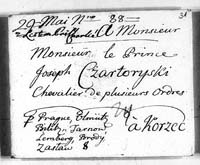 31
29 Mai Nro 88
A Monsieur
Monsieur le Prince
Joseph Czartoryski
Chevalier de plusieurs Ordres
à Korzec
p Prague, Olmütz
Bilitz, Tarnow
Lemberg, Brody
Zaslaw 8